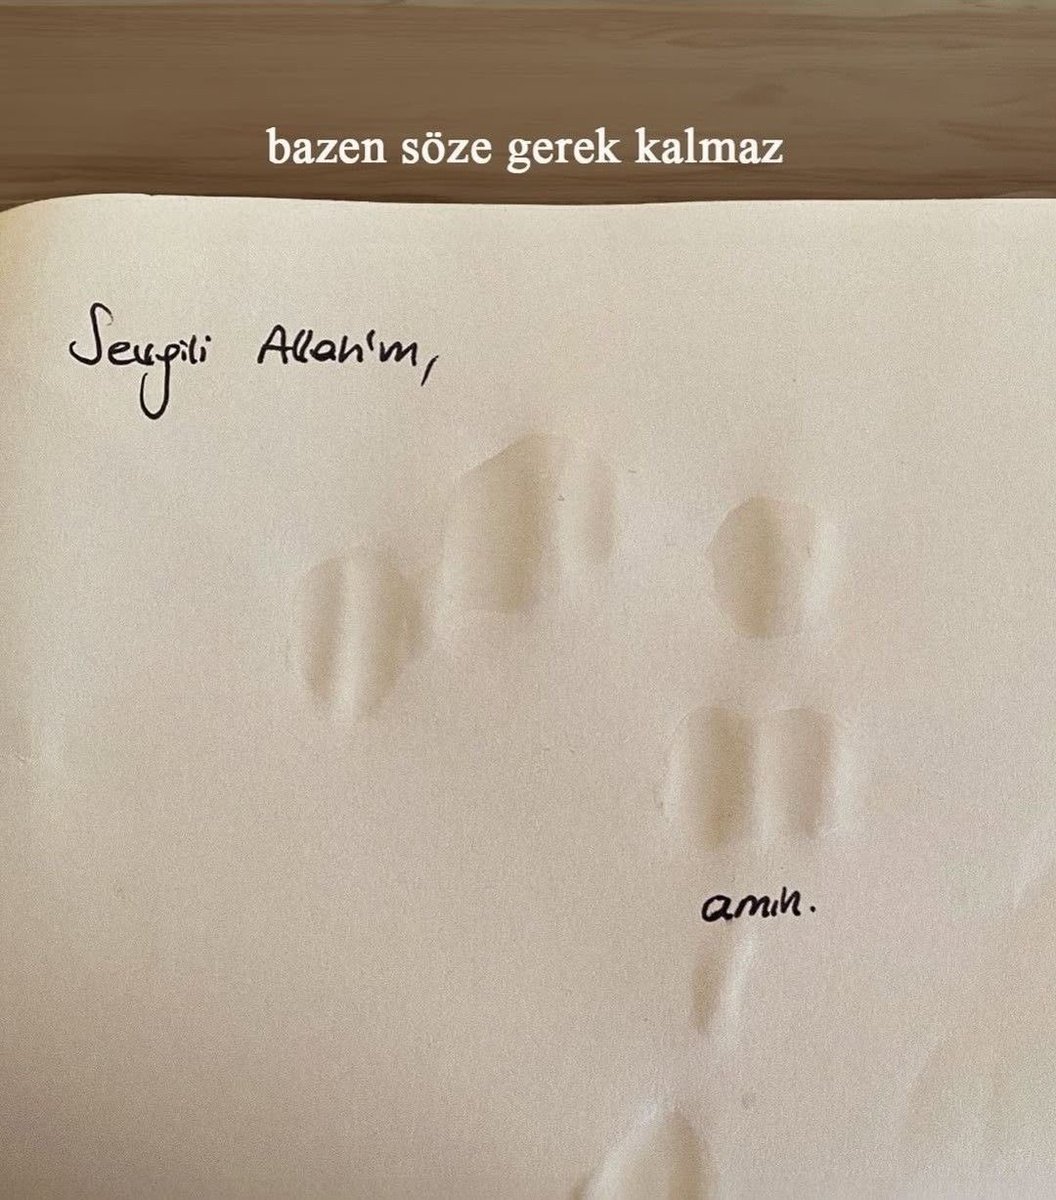 bazen söze gerek kalmaz
Sevgili Allah'ım,
amin.